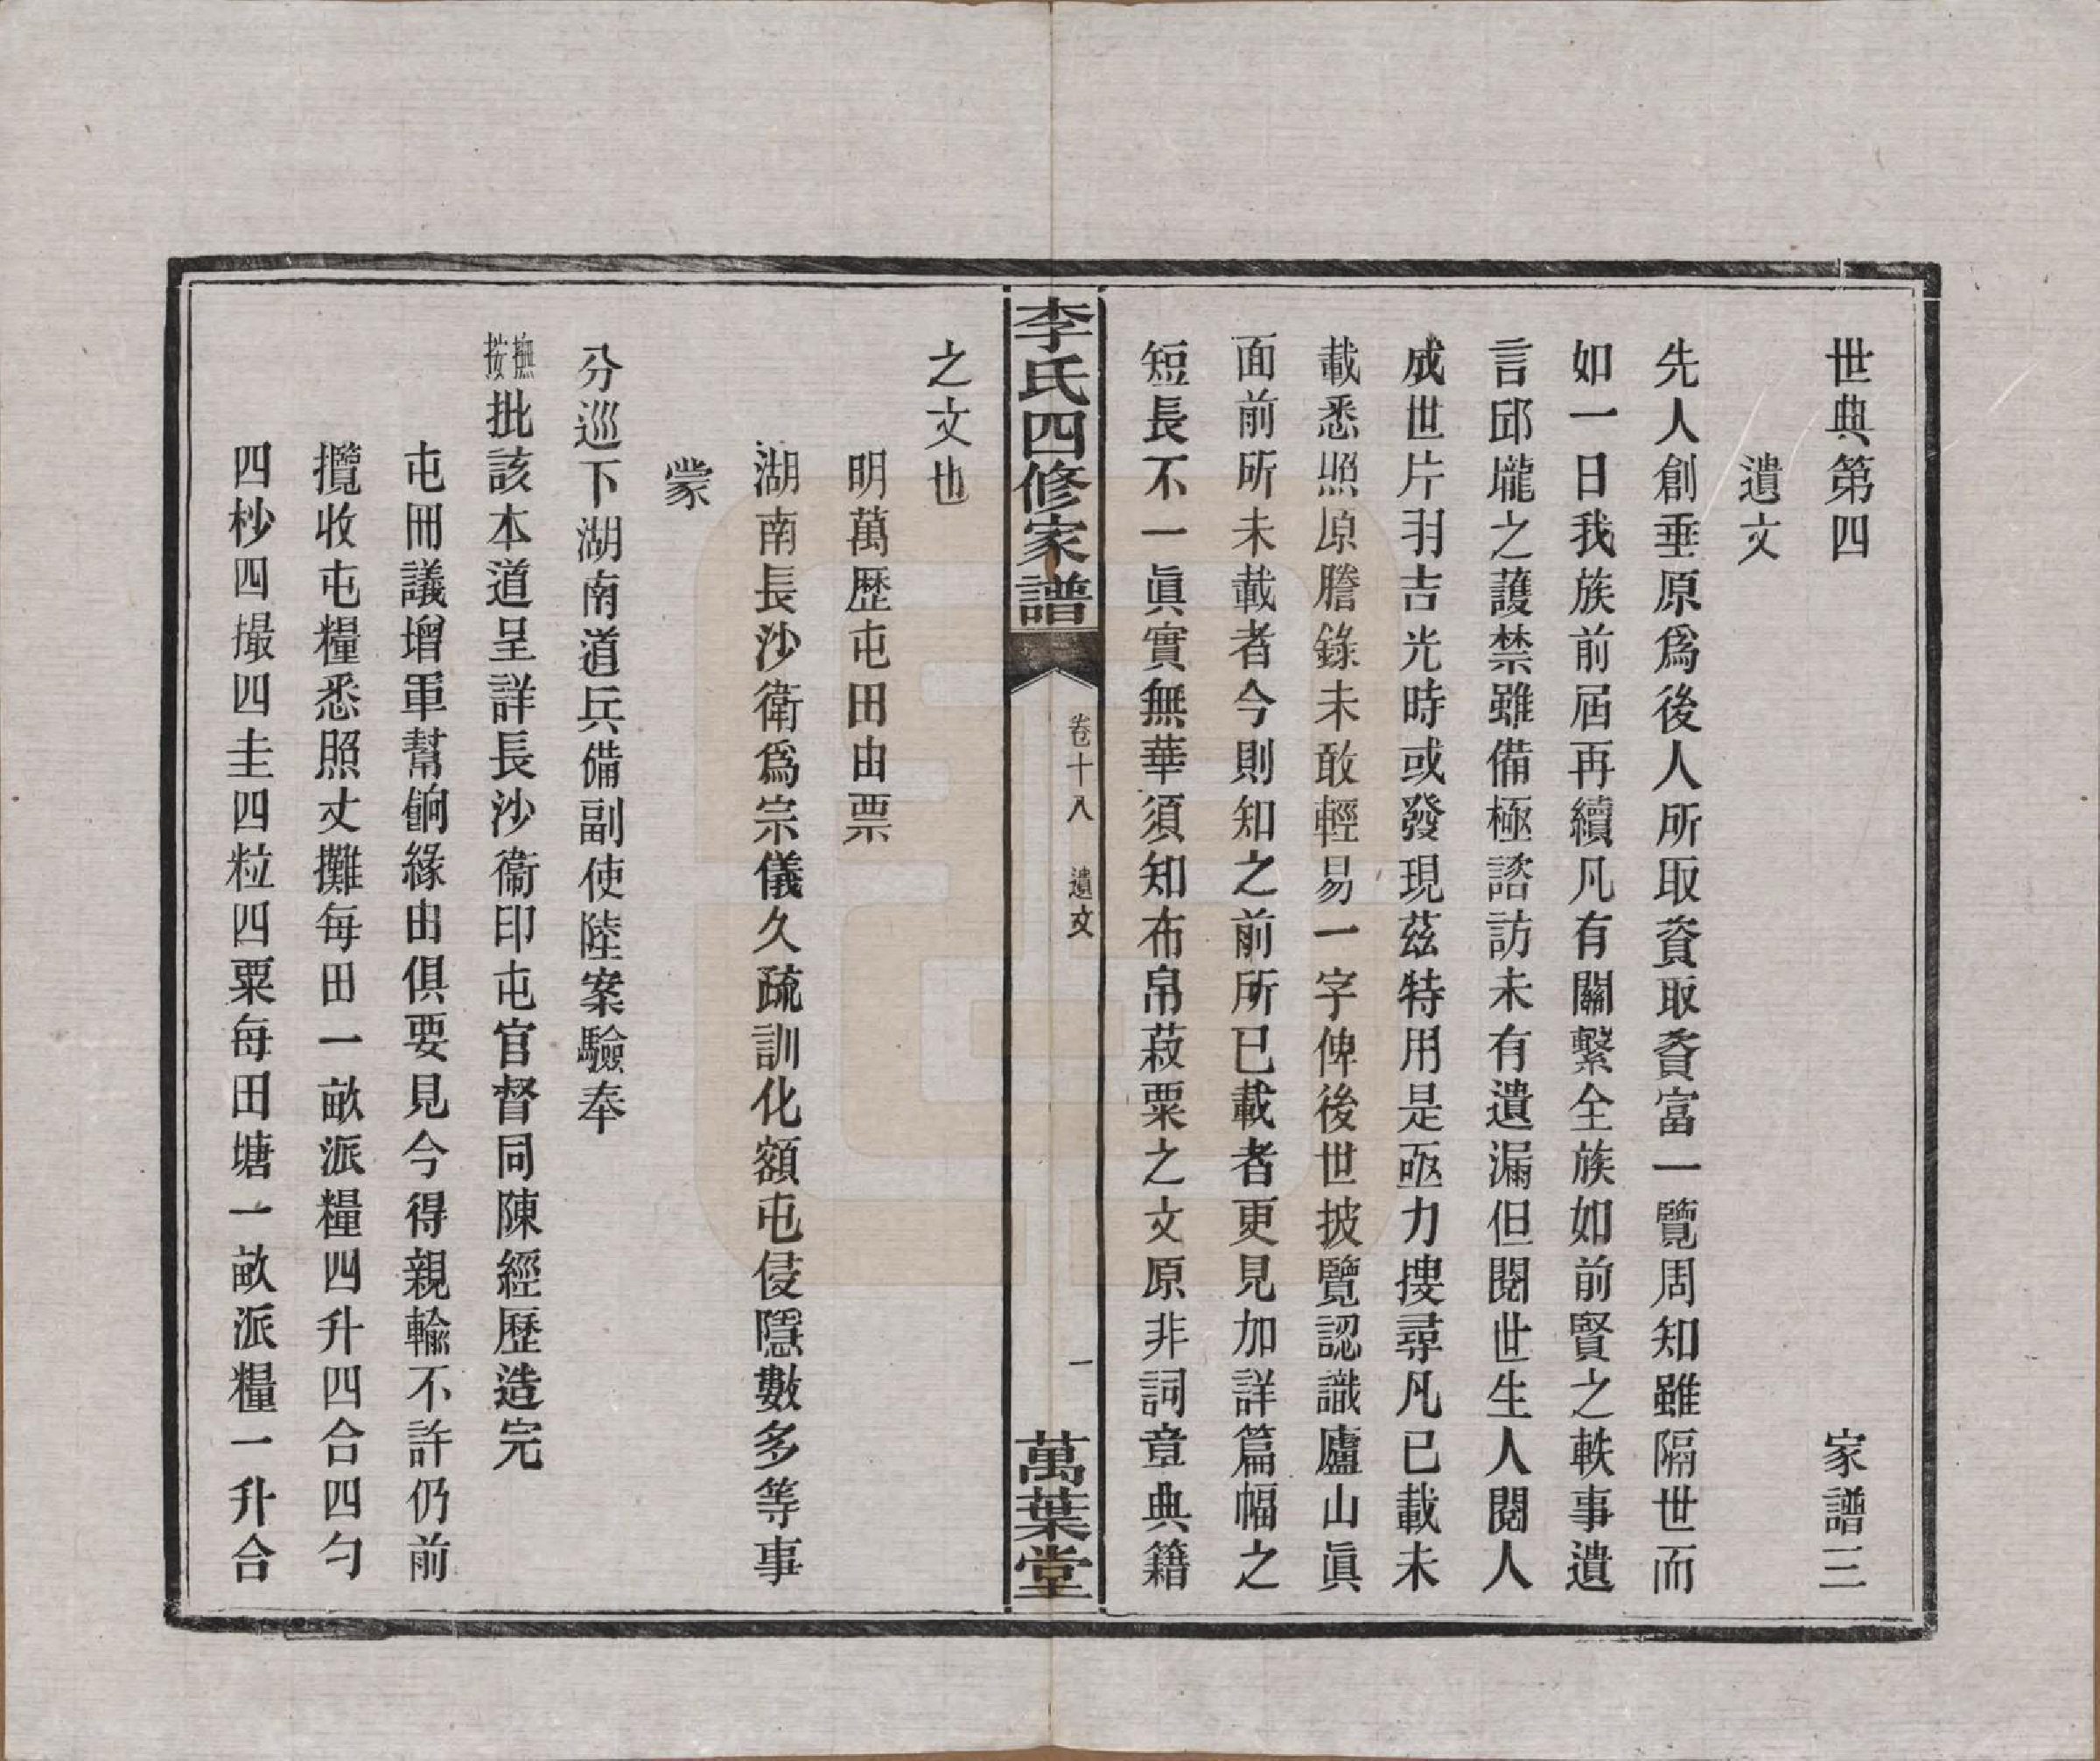 世典第四　家譜三
遺文
先人創垂原爲後人所取資取資富一覽周知雖隔世而
如一日我族前屆再續凡有關繫全族如前賢之軼事遺
言邱壠之護禁雖備極諮訪未有遺漏但閱世生人閱人
成世片羽吉光時或發現茲特用是亟力搜尋凡已載未
載悉照原謄錄未敢輕易一字俾後世披覽認識廬山眞
面前所未載者今則知之前所已載者更見加詳篇幅之
短長不一眞實無華須知布帛菽粟之文原非詞章典籍
李氏四修家譜　卷十八　遺文　一　萬葉堂
之文也
明萬歷屯田由票
湖南長沙衛爲宗儀久疏訓化額屯侵隱數多等事
蒙
分巡下湖南道兵備副使陸案驗奉
撫按批該本道呈詳長沙衞印屯官督同陳經歷造完
屯冊議增軍幫餉緣由俱要見今得親輸不許仍前
攬收屯糧悉照丈攤每田一畝派糧四升四合四勺
四杪四撮四圭四粒四粟每田塘一畝派糧一升合